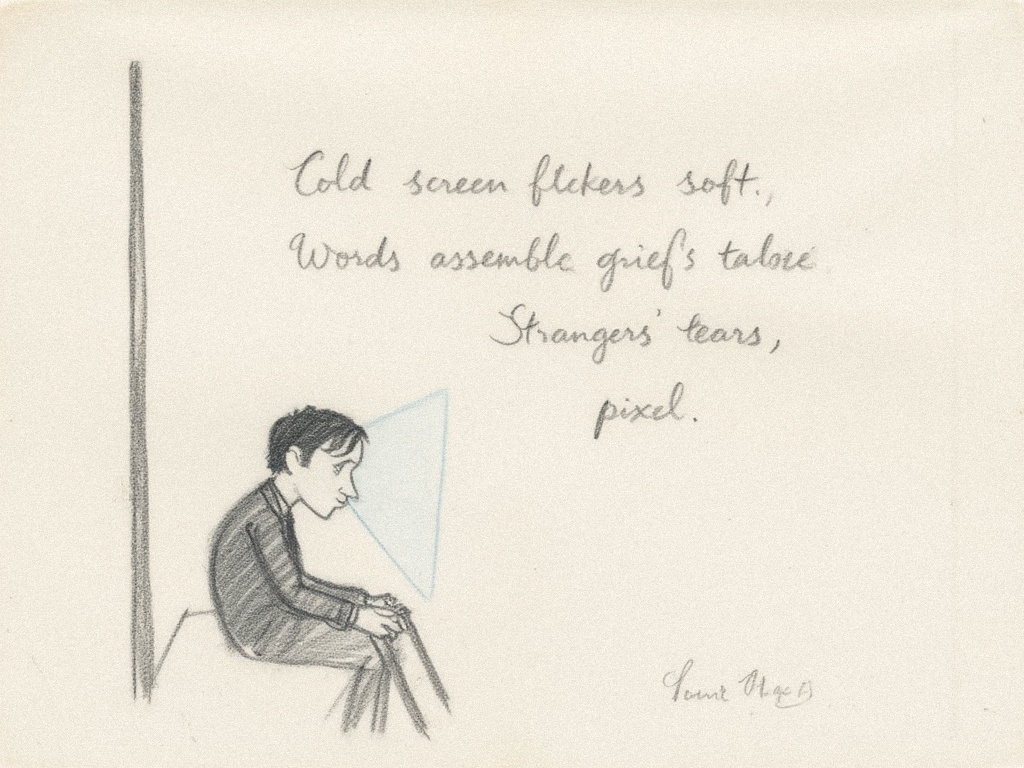 Cold screen flckers soft.,
Words assemble grief's
Strangers' tears,
pixel.